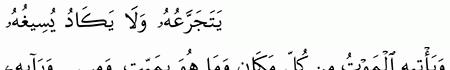 يَتَجَرَّعُهُۥ وَلَا يَكَادُ يُسِيغُهُۥ
وَيَأْتِيهِ ٱلْمَوْتُ مِن كُلِّ مَكَانٍ وَمَا هُوَ بِمَيِّتٍ وَمِن وَرَآئِهِۦ